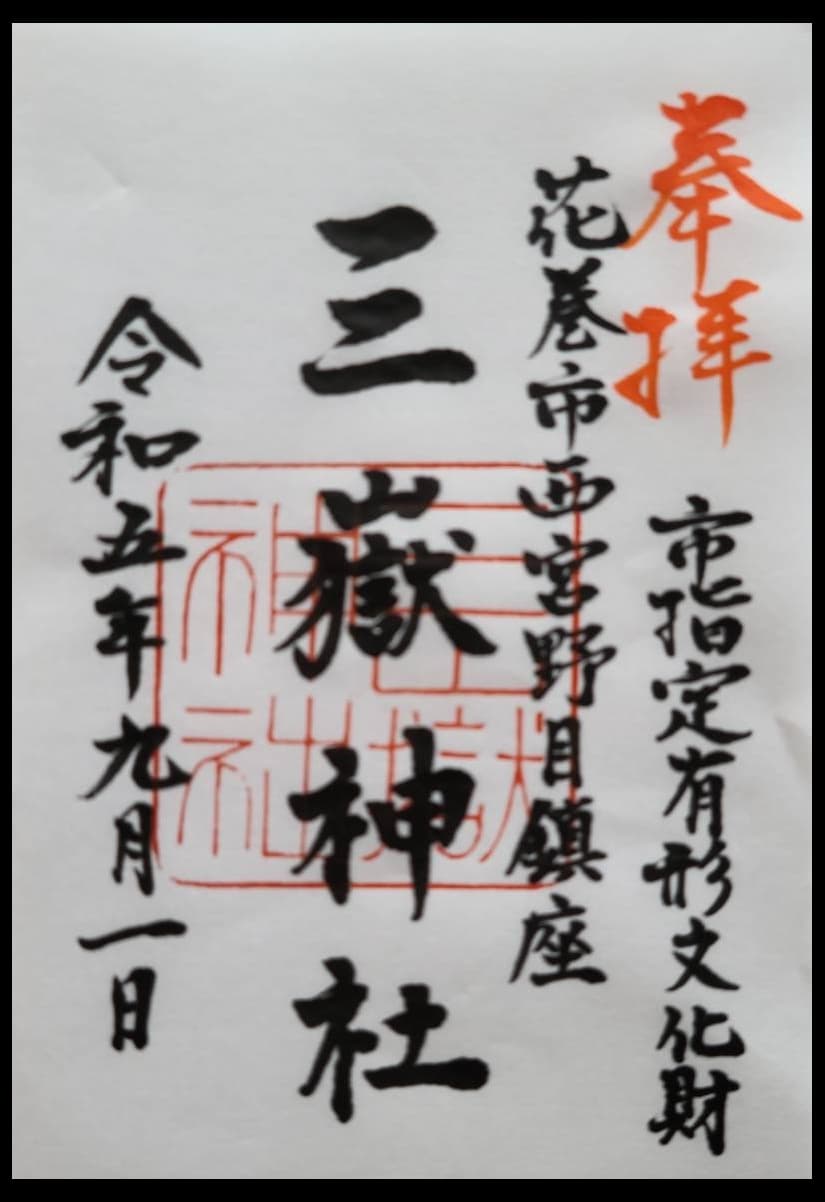 奉拝
市指定有形文化財
花巻市西宮野目鎮座
三嶽神社
令和五年九月一日
三嶽神社